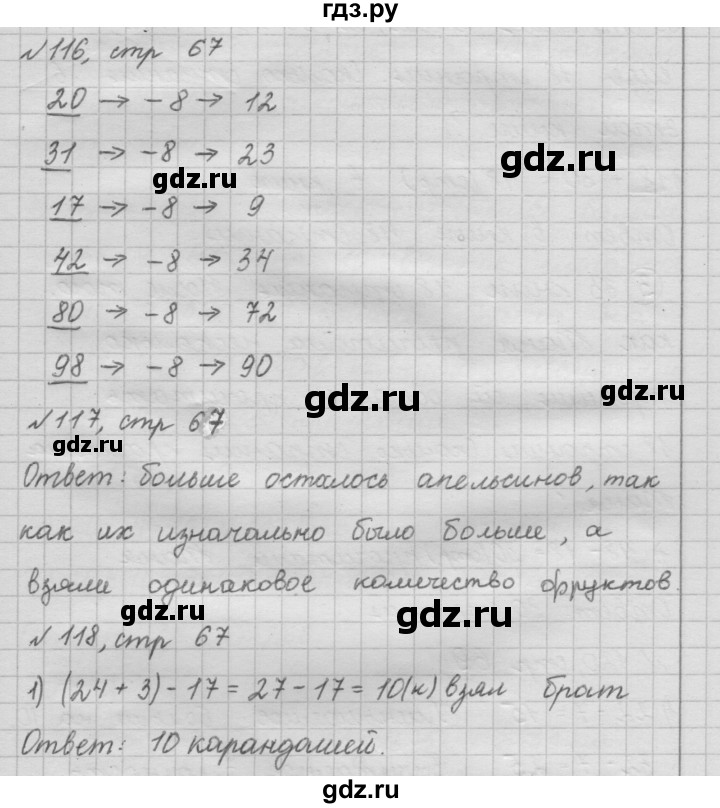 гдз.ру
№116, стр 67
20 → -8 → 12
gdz.ru
31 → -8 → 23
gdz.ru
17 → -8 → 9
42 → -8 → 34
80 → -8 → 72
98 → -8 → 90
gdz.ru
gdz.ru
№117, стр 67
gdz.ru
Ответ: больше осталось апельсинов, так
как их изначально было больше, а
взяли одинаковое количество фруктов.
gdz.ru
gdz.ru
№118, стр 67
1) (24 + 3) - 17 = 27 - 17 = 10(к) взял брат
Ответ: 10 карандашей.
gdz.ru